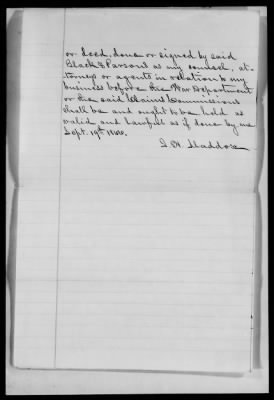 or deed, done or signed by said
Black & Parsons as my counsel, at-
torneys or agents in relation to my
business before the War Department
or the said Claims Commissions
shall be and ought to be held as
valid and lawful as if done by me
Sept. 19th
Maddox